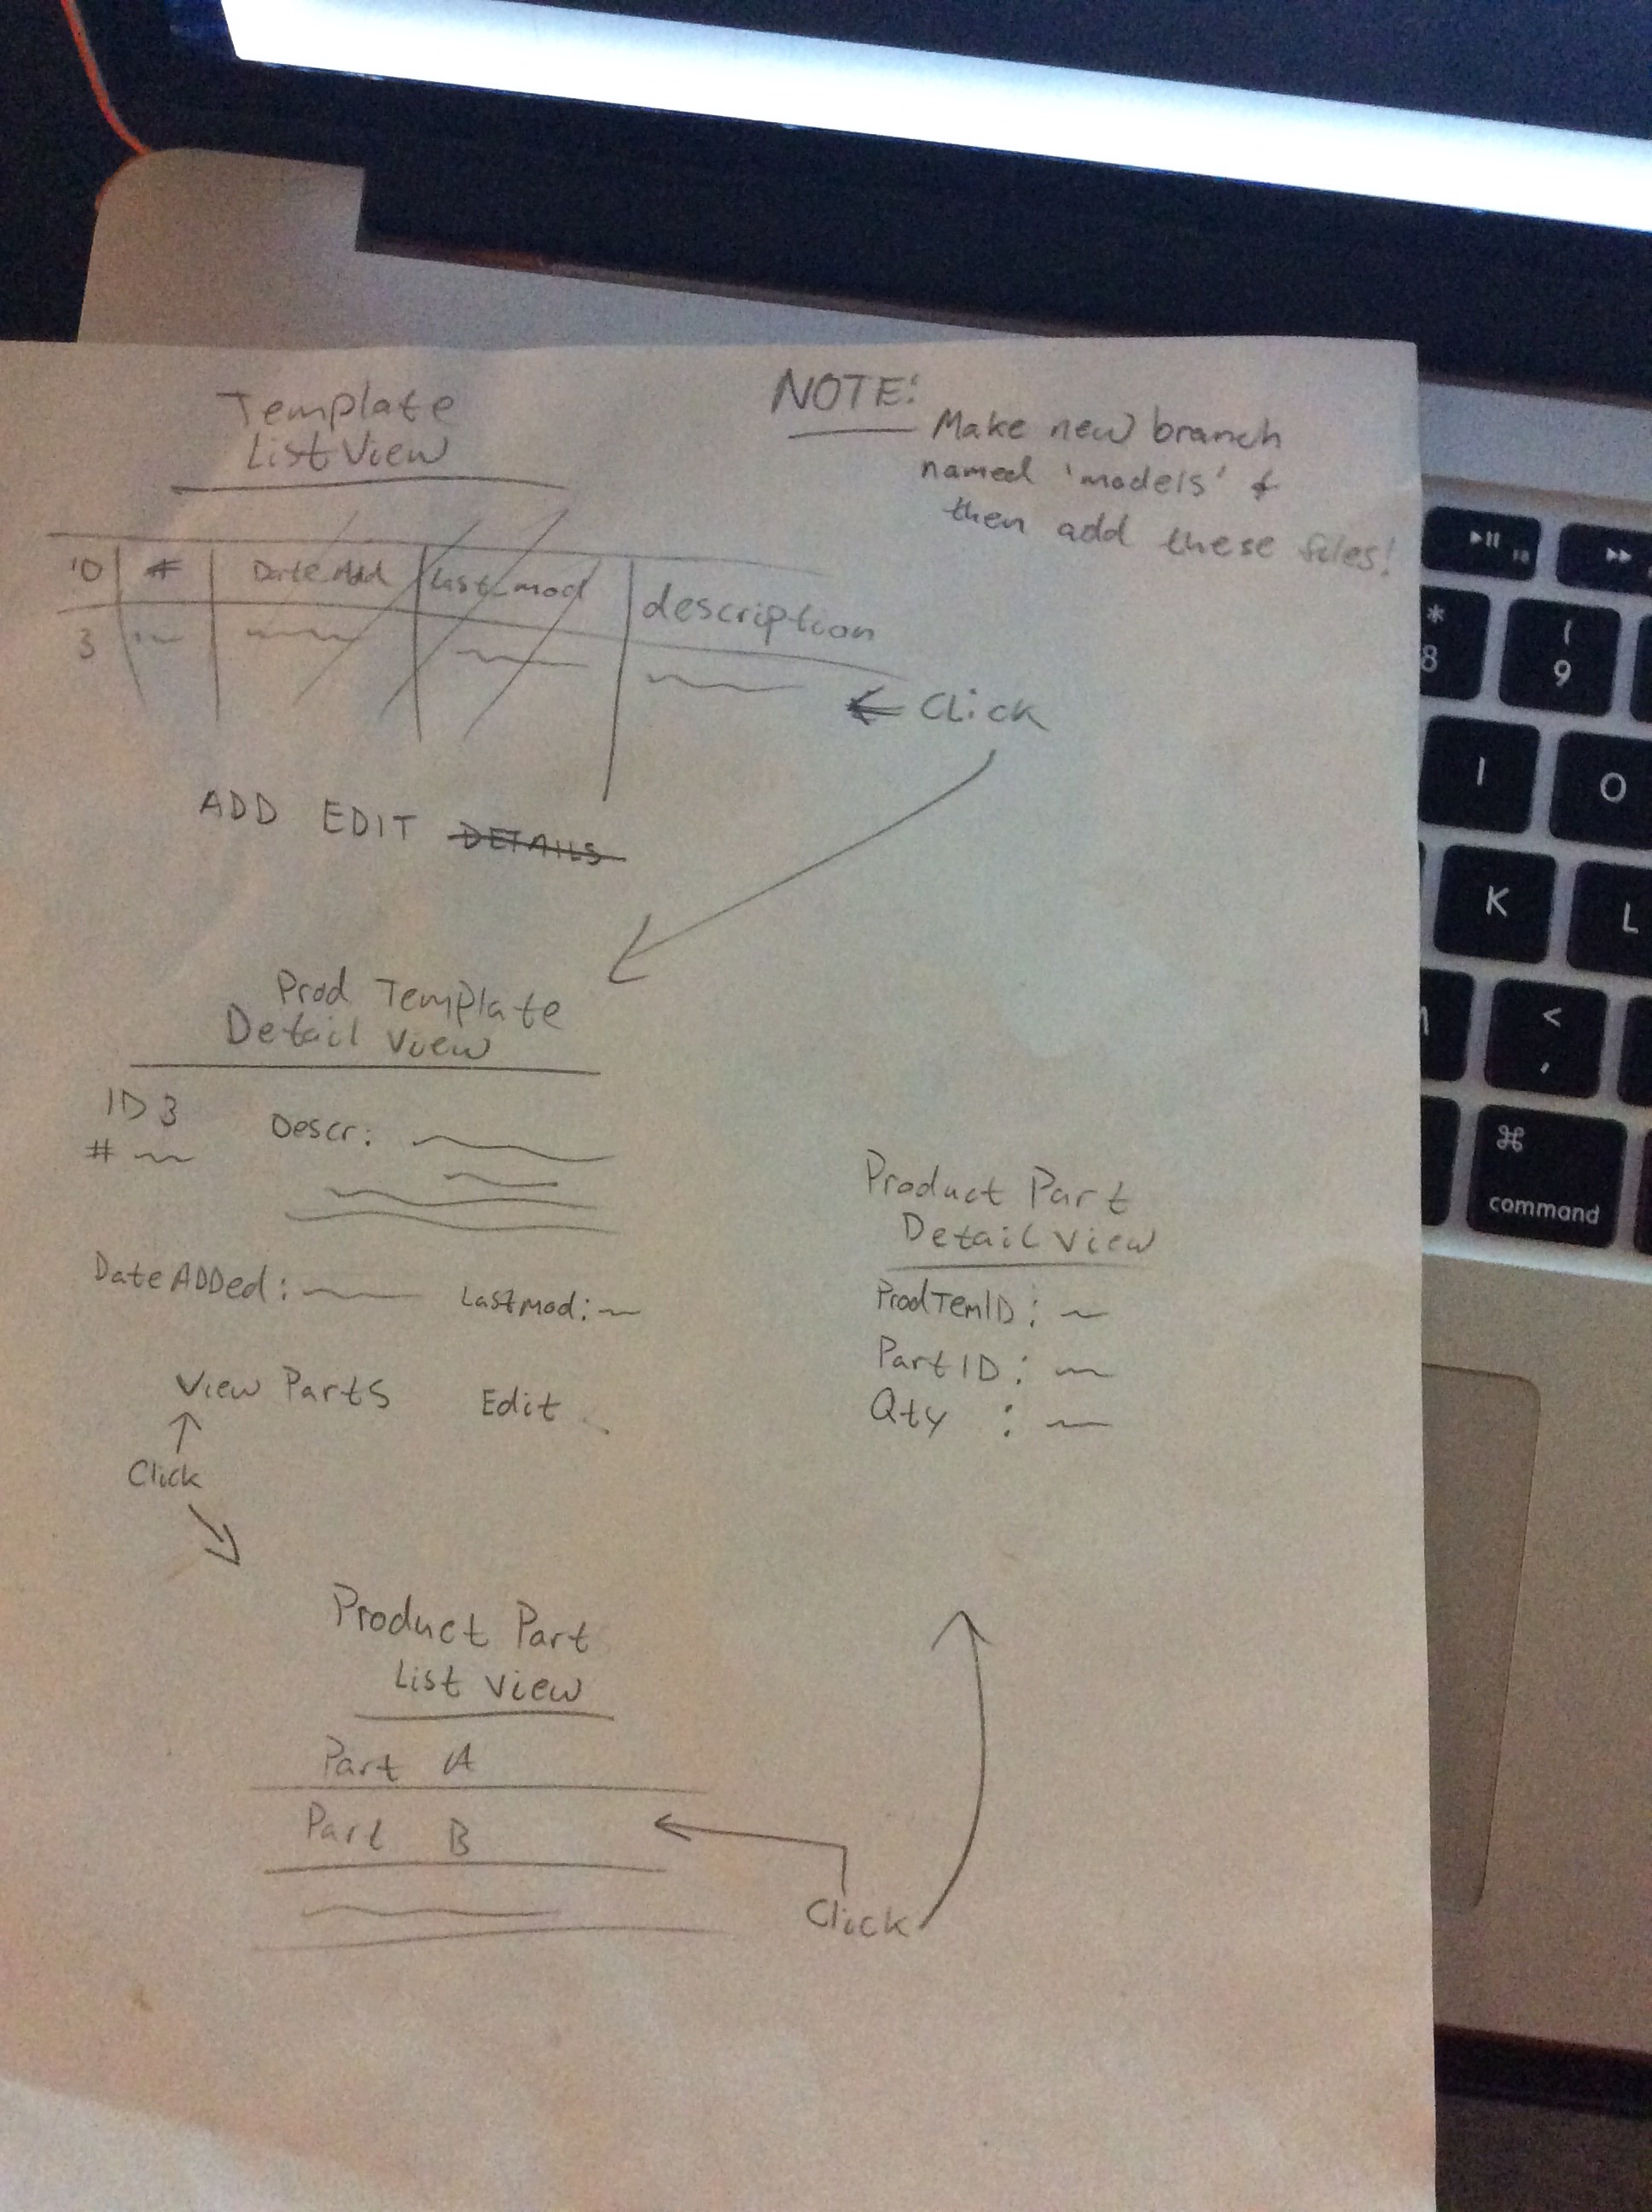 Template
List View
NOTE:
Make new branch
named 'models' &
then add these files!
ID # Date Add Last mod description
3
← Click
ADD EDIT DETAILS
Prod Template
Detail View
ID 3
# Descr:
Date ADDed: Last mod:
View Parts Edit
Click
Product Part
Detail View
ProdTemID:
Part ID:
Qty :
Product Part
List View
Part A
Part B
Click
*
8
(
9
I
O
K
L
<
,
⌘
command